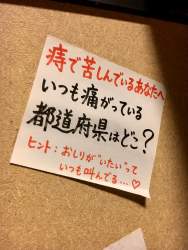 痔で苦しんでいるあなたへ
いつも痛がっている
都道府県はどこ？
ヒント：おしりが"いたい"って
いつも叫んでる…♡